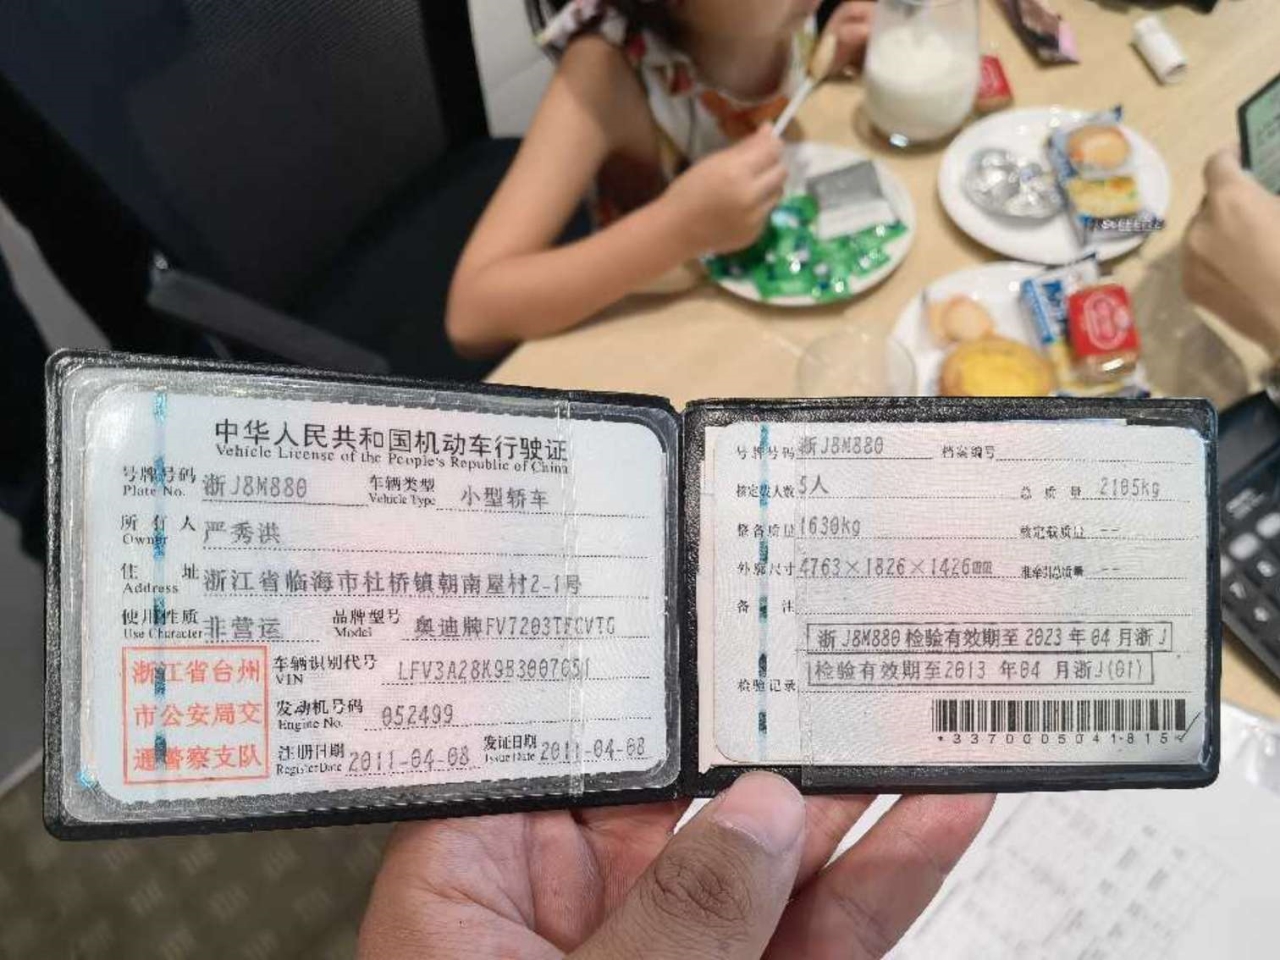 中华人民共和国机动车行驶证
Vehicle License of the People's Republic of China
号牌号码 浙J8M880 车辆类型 小型轿车
Plate No. Vehicle Type
所有人 严秀洪
Owner
住址 浙江省临海市杜桥镇朝南屋村2-1号
Address
使用性质 非营运 品牌型号 奥迪牌FV7203TFCVTG
Use Character Model
浙江省台州
市公安局交
通警察支队
车辆识别代号 LFV3A28K9B3007651
VIN
发动机号码 052499
Engine No.
注册日期 2011-04-08 发证日期 2011-04-08
Register Date Issue Date
号牌号码 浙J8M880 档案编号
核定载人数 5人 总质量 2105kg
整备质量 1630kg 核定载质量 --
外廓尺寸 4763×1826×1426mm 准牵引总质量 --
备注
浙J8M880检验有效期至2023年04月浙J
检验有效期至2013年04月浙J(01)
检验记录
*3370005041815*